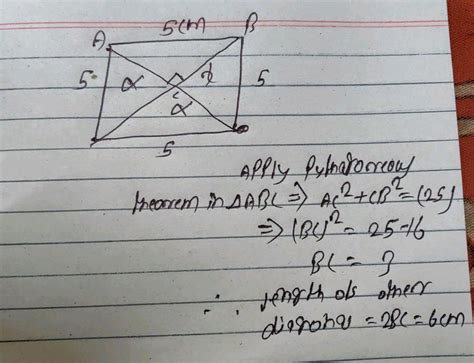 5cm
A B
5 α 5
C
α
5
Apply Pythatoreous
theorem in ΔABC ⇒ AC² + CB² = (25)
⇒ (BC)² = 25-16
BC = 3
∴ length of other
diagonal = 2BC = 6cm